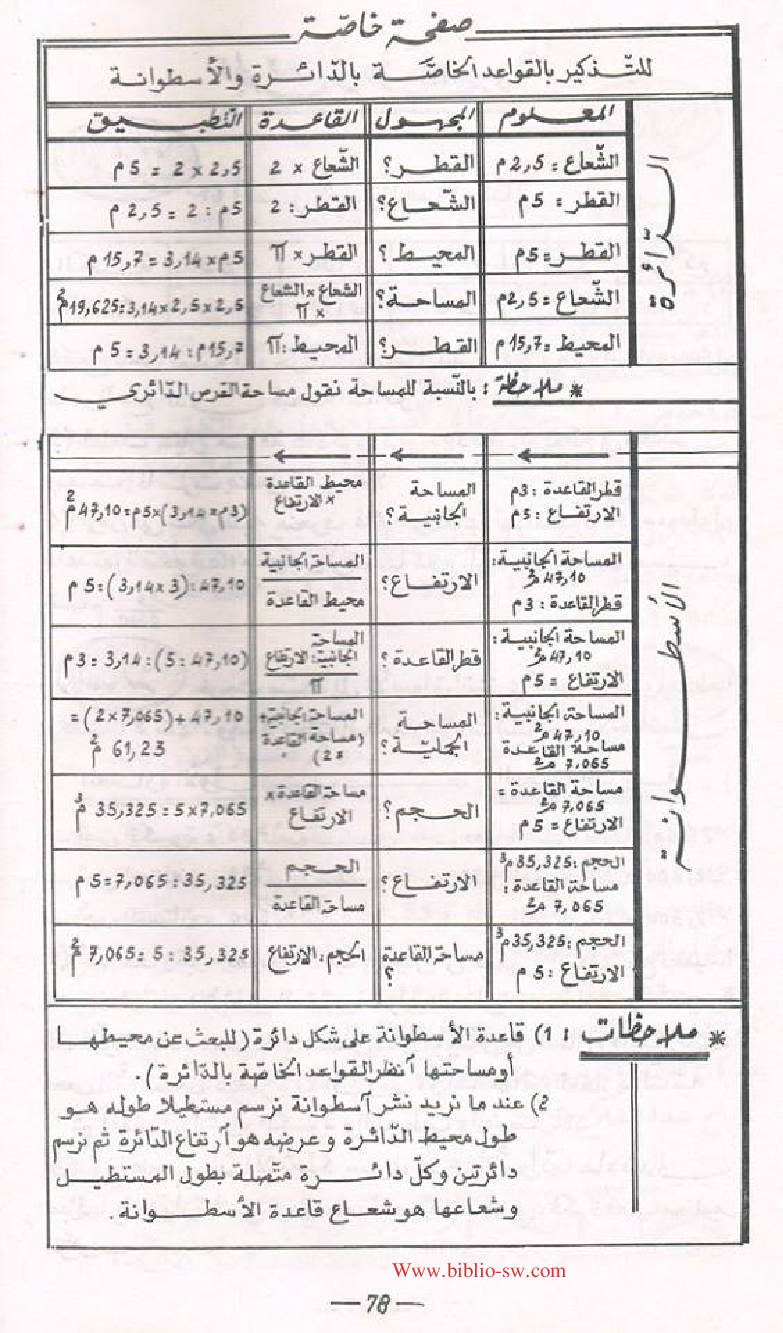 صفحة خاصّة
للتّذكير بالقواعد الخاصّة بالدّائرة والأسطوانة
المعلوم المجهول القاعدة التّطبيق
الدّائرة
الشّعاع = 2,5م القطر؟ الشّعاع × 2 2,5 × 2 = 5م
القطر = 5م الشّعاع؟ القطر : 2 5م : 2 = 2,5م
القطر = 5م المحيط؟ القطر × π 5م × 3,14 = 15,7م
الشّعاع = 2,5م المساحة؟ الشعاع × الشعاع × π 2,5 × 2,5 × 3,14 = 19,625م²
المحيط = 15,7م القطر؟ المحيط : π 15,7م : 3,14 = 5م
* ملاحظة : بالنّسبة للمساحة نقول مساحة القرص الدّائري
الأسطوانة
قطر القاعدة : 3م
الارتفاع : 5م
المساحة
الجانبية؟
محيط القاعدة
× الارتفاع
(3م × 3,14) × 5م = 47,10م²
المساحة الجانبية :
47,10م²
قطر القاعدة : 3م
الارتفاع؟
المساحة الجانبية
محيط القاعدة
47,10 : (3 × 3,14) = 5م
المساحة الجانبية :
47,10م²
الارتفاع = 5م
قطر القاعدة؟
المساحة
الجانبية : الارتفاع
π
(47,10 : 5) : 3,14 = 3م
المساحة الجانبية :
47,10م²
مساحة القاعدة
7,065م²
المساحة
الجمليّة؟
المساحة الجانبية +
(مساحة القاعدة
× 2)
47,10 + (7,065 × 2) =
61,23م²
مساحة القاعدة =
7,065م²
الارتفاع = 5م
الحجم؟
مساحة القاعدة ×
الارتفاع
7,065 × 5 = 35,325م³
الحجم : 35,325م³
مساحة القاعدة :
7,065م²
الارتفاع؟
الحجم
مساحة القاعدة
35,325 : 7,065 = 5م
الحجم : 35,325م³
الارتفاع : 5م
مساحة القاعدة
؟
الحجم : الارتفاع
35,325 : 5 = 7,065م²
* ملاحظات : 1) قاعدة الأسطوانة على شكل دائرة (للبحث عن محيطها
أو مساحتها آنظر القواعد الخاصّة بالدّائرة).
2) عندما نريد نشر آسطوانة نرسم مستطيلا طوله هو
طول محيط الدّائرة وعرضه هو آرتفاع الدّائرة ثم نرسم
دائرتين وكلّ دائرة متّصلة بطول المستطيل
وشعاعها هو شعاع قاعدة الأسطوانة.
Www.biblio-sw.com
— 78 —